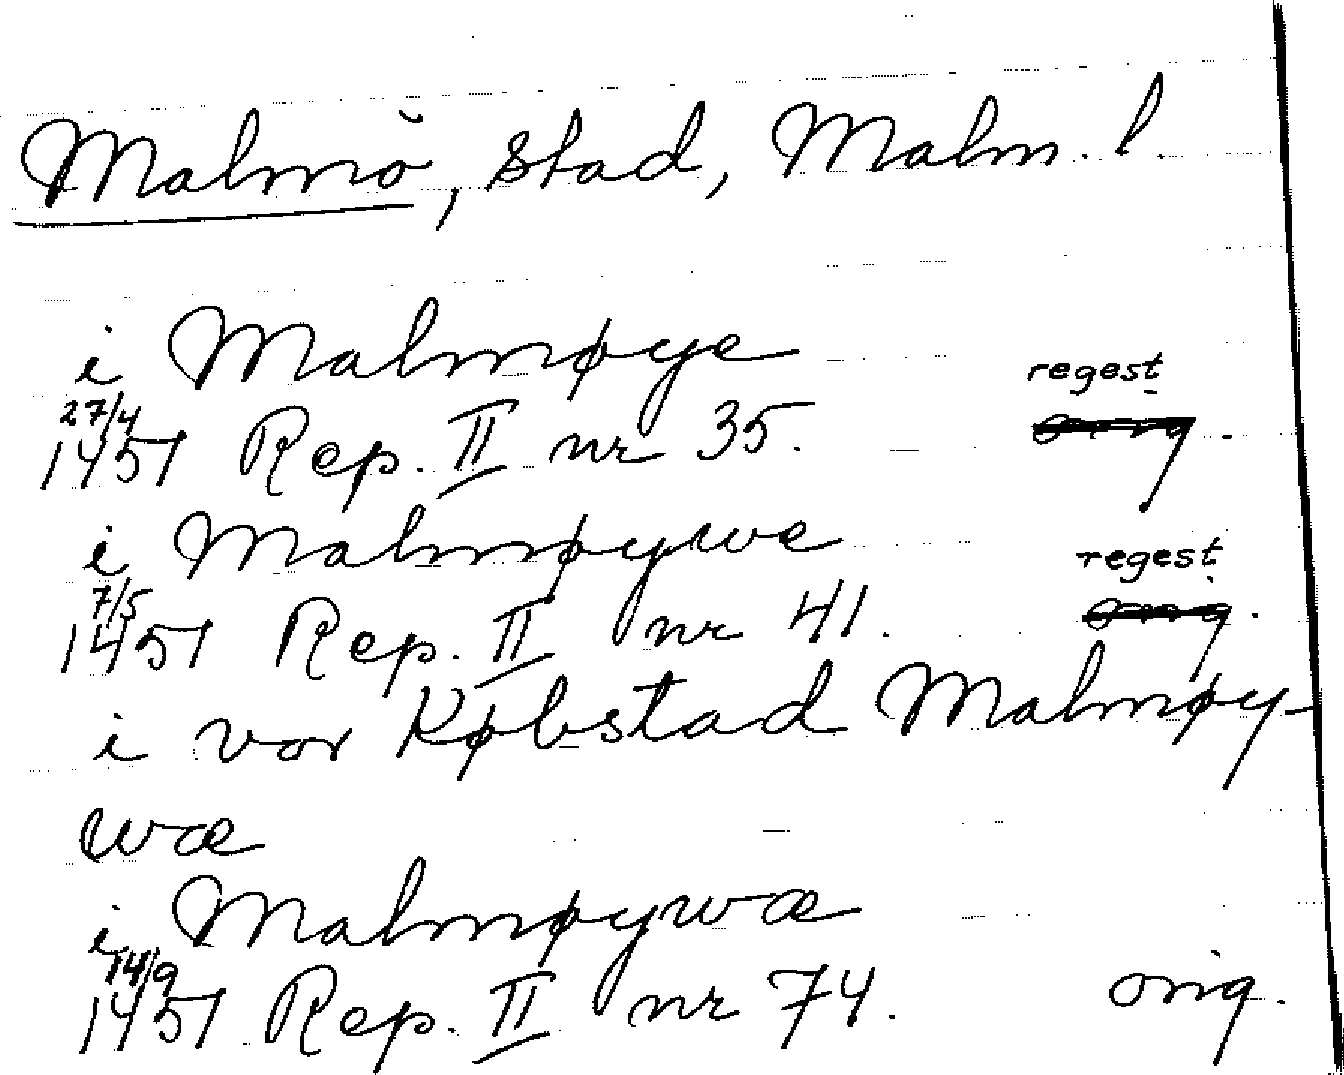 Malmö, stad, Malm. l.
i Malmøye regest
27/4
1451 Rep. II nr 35.
i Malmøywe regest
7/5
1451 Rep. II nr 41.
i vor Købstad Malmøy-
wæ
i Malmøywæ
14/9
1451 Rep. II nr 74. orig.